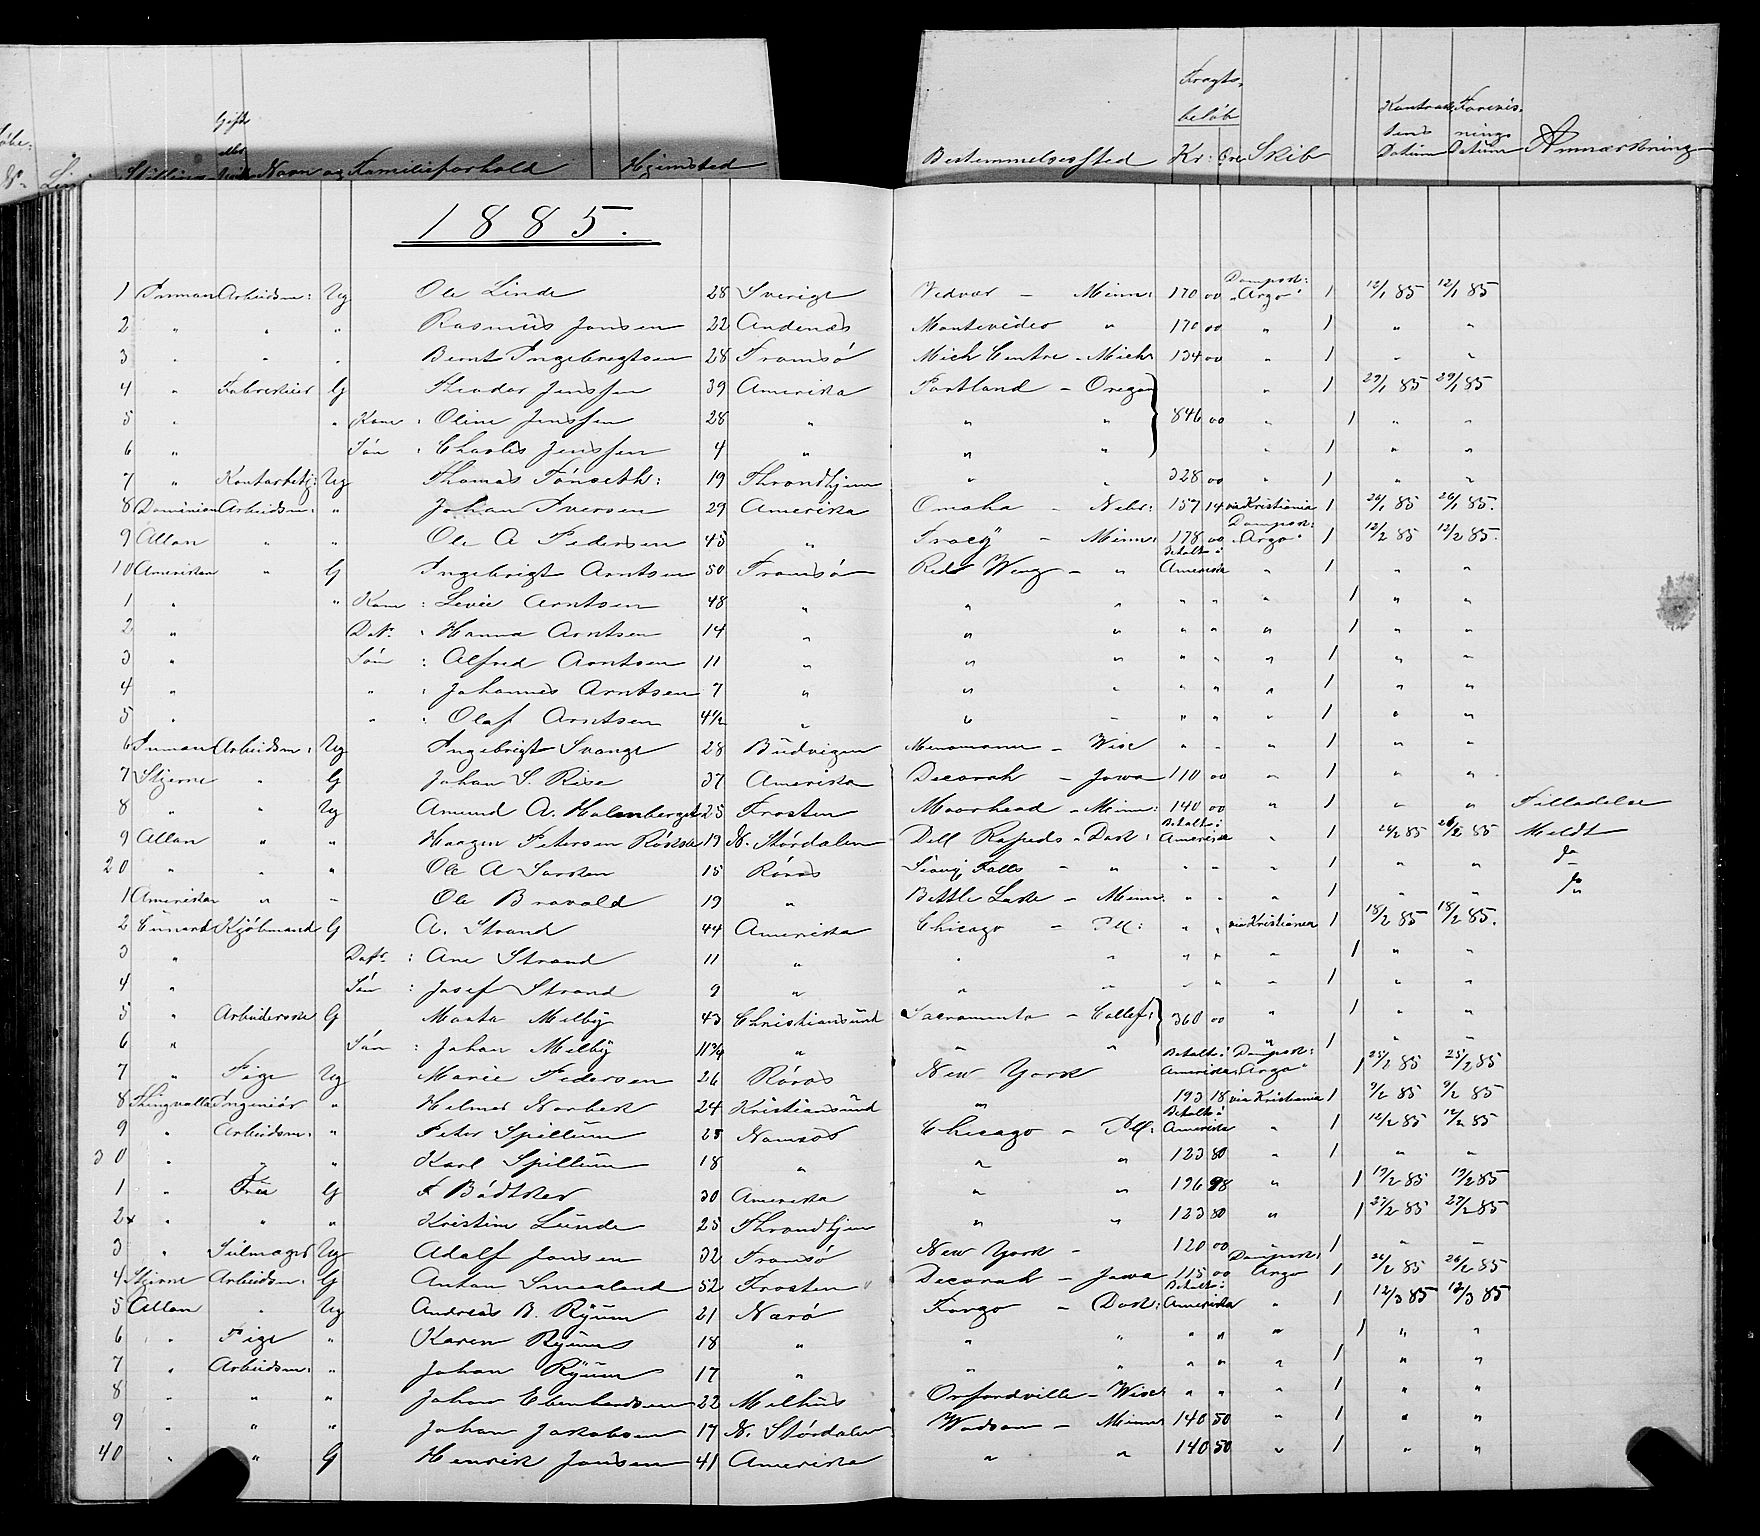 Gift
eller
Linie Stilling Navn og Familieforhold Hjemsted
Fragts-
beløb
Bestemmelsessted Kr: Øre Skib
Kontrak-
tens
Datum
Forevis-
nings
Datum
Anmærkning
1885.
1 Inman Arbeidsm: Ug Ole Linde 28 Sverige Vedvar - Minn: 170 00 Dampsk: "Argo" 1 12/1 85 12/1 85
2 " " " Rasmus Jansen 22 Andenæs Montevideo " 170 00 " 1 " "
3 " " " Bernt Ingebrigtsen 28 Tromsø Mich Centre - Mich 134 00 " 1 " "
4 " Fabrikeier G Theodor Jenssen 39 Amerika Portland - Oregon " 1 29/1 85 29/1 85
5 " " Kone : Oline Jenssen 28 " " " 846 00 " 1 " "
6 " Søn : Charles Jenssen 4 " " " " 1 " "
7 " Kontorbetj: Ug Thomas Fønseth: 19 Throndhjem " " 328 00 " 1 " "
8 Dominion Arbeidsm: " Johan Iversen 29 Amerika Omaha - Nebr: 157 14 via Kristiania 1 26/1 85 26/1 85.
9 Allan " " Ole A Pedersen 45 " Tracy - Minn: 178 00 Dampsk: "Argo" 1 12/2 85 12/2 85.
10 Amerikan " G Ingebrigt Arntsen 50 Tromsø Red Wing - " Betalt i Amerika " 1 " "
1 " " Kone : Levie Arntsen 48 " " " " " " 1 " "
2 " Datr. : Hanna Arntsen 14 " " " " " " 1 " "
3 " Søn : Alfred Arntsen 11 " " " " " " 1 " "
4 " " : Johannes Arntsen 7 " " " " " " 1 " "
5 " " : Olaf Arntsen 4½ " " " " " " 1 " "
6 Inman Arbeidsm: Ug Ingebrigt Svange 28 Budvigen Menomonee - Wisc " " " 1 " "
7 Stjerne " G Johan S. Rise 37 Amerika Decorah - Jowa 110 00 " 1 " "
8 " " Ug Amund A. Halenberget 25 Frosten Moorhead - Minn: 140 00 " 1 " " Tilladelse
9 Allan " " Haagen Petersen Røkke 19 N. Størdalen Dell Rapeds - Dak: Betalt i Amerika " 1 24/2 85 26/2 85 Meldt
20 " " " Ole A Larsen 15 Røros Sioux Falls - " " " " 1 " " do
1 Amerikan " " Ole Bravold 19 " Battle Lake - Minn " " 1 " " do
2 Cunard Kjøbmand G A. Strand 44 Amerika Chicago - Ill: " " via Kristiania 1 18/2 85 18/2 85.
3 " Datr. : Ane Strand 11 " " " " " " 1 " "
4 " Søn : Josef Strand 9 " " " " " " 1 " "
5 " Arbeiderske G Marta Melby 43 Christiansund Sacramento - Callef: 360 00 " 1 " "
6 " Søn : Johan Melby 11¾ " " " " 1
7 " Pige Ug Marie Pedersen 26 Røros New York Betalt i Amerika Dampsk: "Argo" 1 25/2 85 25/2 85
8 Thingvalla Ingeniør " Helmer Norbek 24 Kristiansund " 193 18 via Kristiania 1 9/2 85 9/2 85
9 " Arbeidsm: " Peter Spillum 25 Namsos Chicago - Ill: Betalt i Amerika " 1 12/2 85 12/2 85
30 " " " Karl Spillum 18 " " " 123 80 " 1 " "
1 " Frue G F Bødtker 30 Amerika " " 196 98 " 1 19/2 85 19/2 85
2x " " " Kristine Lunde 25 Throndhjem " " 123 80 " 1 27/2 85 27/2 85
3 " Seilmager Ug Adolf Jansen 32 Tromsø New York - 120 00 " 1 " "
4 Stjerne Arbeidsm: G Anton Smaaland 52 Frosten " Decorah - Jowa 115 00 Dampsk: Argo 1 26/2 85 26/2 85
5 Allan " Ug Andreas B. Ryum 21 Nærø Fargo - Dak: Betalt i Amerika " 1 12/3 85 12/3 85
6 " Pige " Karen Ryum 18 " " " " " " 1 " "
7 " Arbeidsm: " Johan Ryum 17 " " " " " " 1 " "
8 " " " Johan Ebenhardsen 22 Melhus Orfordville - Wisc " " " 1 " "
9 " " " Johan Jakobsen 17 N. Størdalen Wadsan - Minn 140 50 " 1 " "
40 " " G Henrik Jansen 41 Amerika " " 140 50 " 1 " "